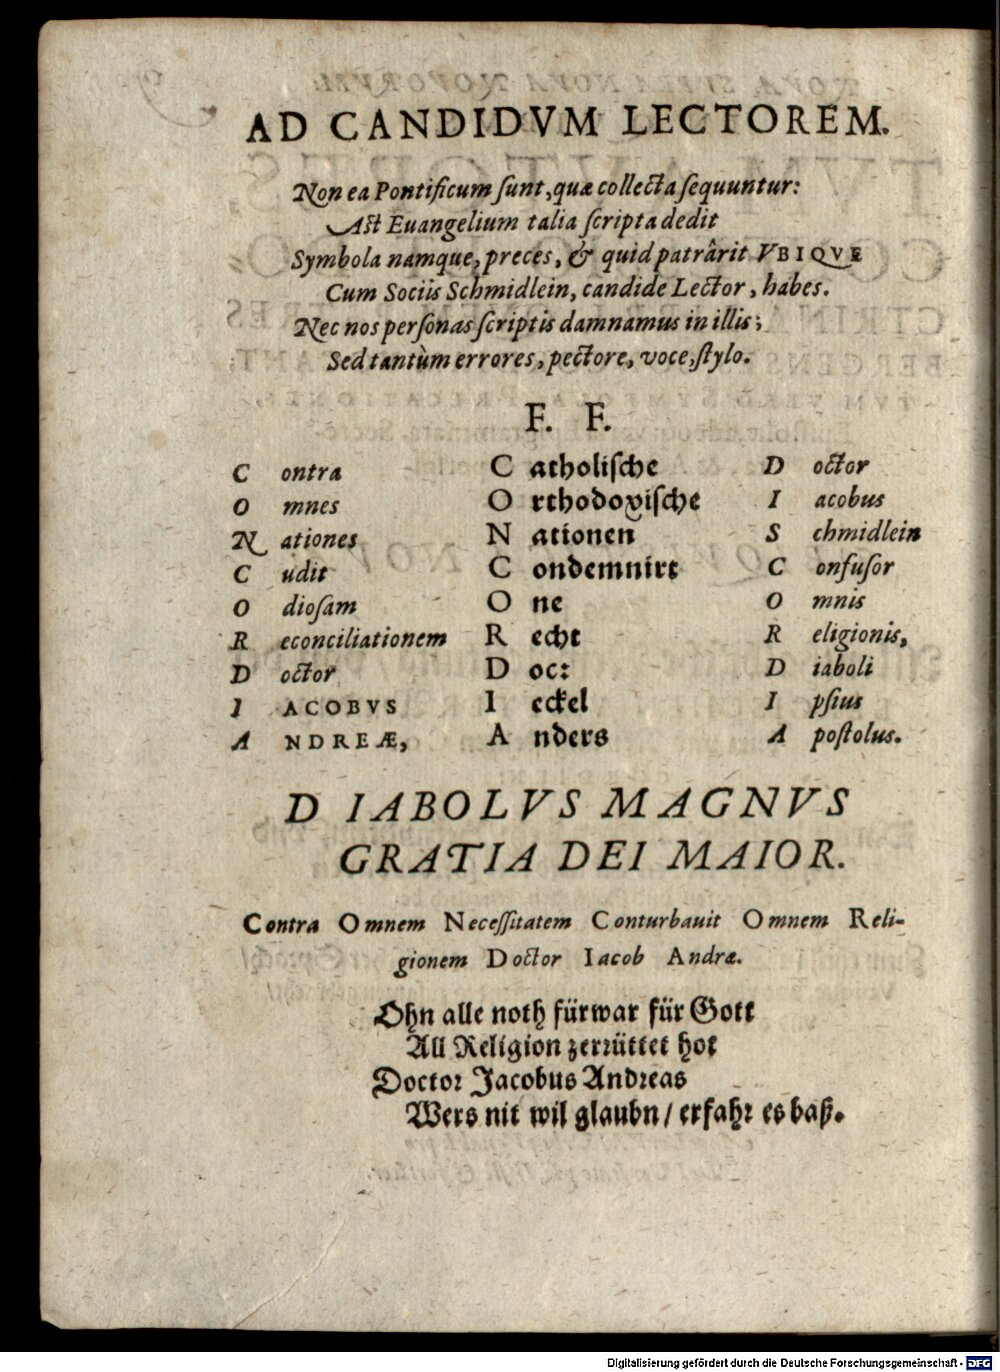 AD CANDIDVM LECTOREM.
Non ea Pontificum ſunt, quæ collecta ſequuntur:
Aſt Euangelium talia ſcripta dedit
Symbola namque, preces, & quid patrârit VBIQVE
Cum Sociis Schmidlein, candide Lector, habes.
Nec nos perſonas ſcriptis damnamus in illis;
Sed tantùm errores, pectore, voce, ſtylo.
F. F.
C ontra
O mnes
N ationes
C udit
O dioſam
R econciliationem
D octor
I ACOBVS
A NDREÆ,
C atholiſche
O rthodoxiſche
N ationen
C ondemnirt
O ne
R echt
D oc:
I eckel
A nders
D octor
I acobus
S chmidlein
C onfuſor
O mnis
R eligionis,
D iaboli
I pſius
A poſtolus.
D IABOLVS MAGNVS
GRATIA DEI MAIOR.
Contra Omnem Neceſſitatem Conturbauit Omnem Reli-
gionem Doctor Iacob Andræ.
Ohn alle noth fürwar für Gott
All Religion zerrüttet hot
Doctor Jacobus Andreas
Wers nit wil glaubn / erfahr es baß.
Digitalisierung gefördert durch die Deutsche Forschungsgemeinschaft - DFG